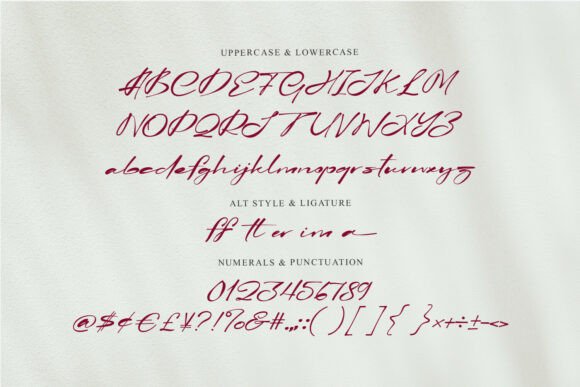 UPPERCASE & LOWERCASE
ABCDEFGHIJKLM
NOPQRSTUVWXYZ
abcdefghijklmnopqrstuvwxyz
ALT STYLE & LIGATURE
ff tt er im a
NUMERALS & PUNCTUATION
0123456789
@$¢€£¥?!%&#.,;:()[]{}×+÷±-<>